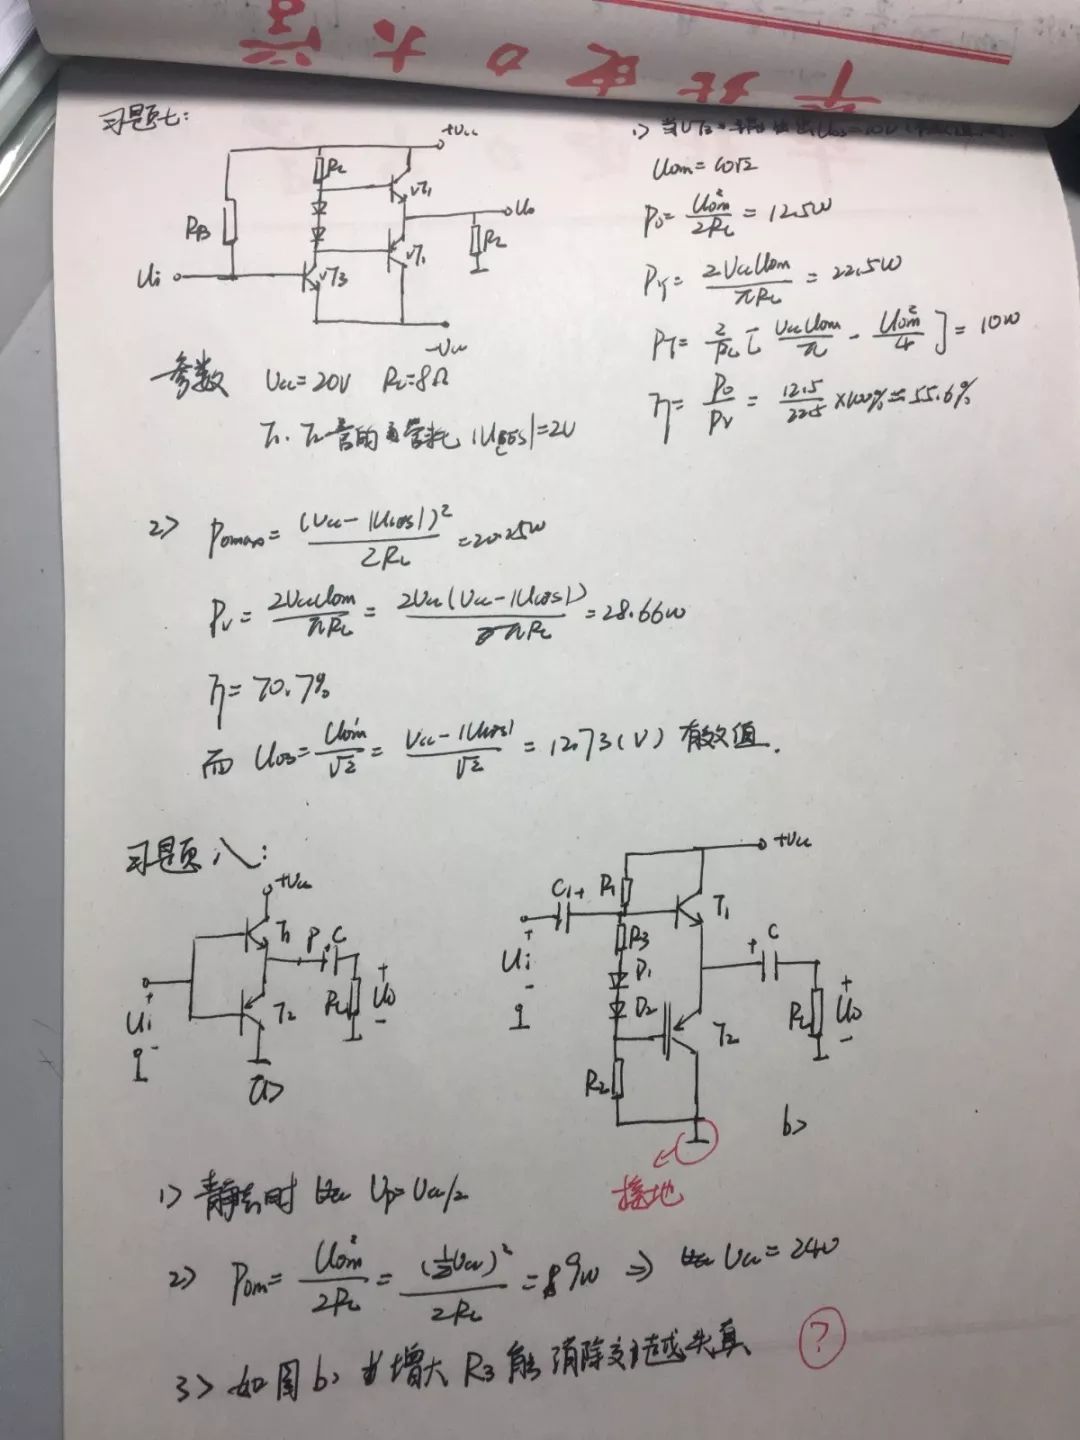 习题七:
+Vcc
Rc
VT1
Uo
RB
RL
VT1
Ui
VT3
-Vcc
参数 Vcc=20V RL=8Ω
T1. T2管的 管耗 |UCES|=2V
Uom=10√2
Po= Uom²/2RL = 12.5W
PV= 2VccUom/πRL = 22.5W
PT= 2/RL [ VccUom/π - Uom²/4 ] = 10W
η= Po/PV = 12.5/22.5 ×100% ≈ 55.6%
2) Pomax= (Vcc-|Uces|)²/2RL =20.25W
Pv = 2VccUom/πRL = 2Vcc(Vcc-|Uces|)/πRL =28.66W
η= 70.7%
而 Uo3= Uom/√2 = Vcc-|Uces|/√2 = 12.73(V) 有效值.
习题八:
+Vcc
T1
P
+
C
T2
RL
+
Uo
-
+
Ui
-
a)
+Vcc
C1+
R1
T1
R3
+
Ui
-
D1
D2
+
C
T2
RL
+
Uo
-
R2
b)
接地
1) 静态时 Up=Vcc/2
2) Pom= Uom²/2RL = (½Vcc)²/2RL = 9W ⇒ Vcc=24V
3) 如图b, 增大 R3 能 消除交越失真 ?